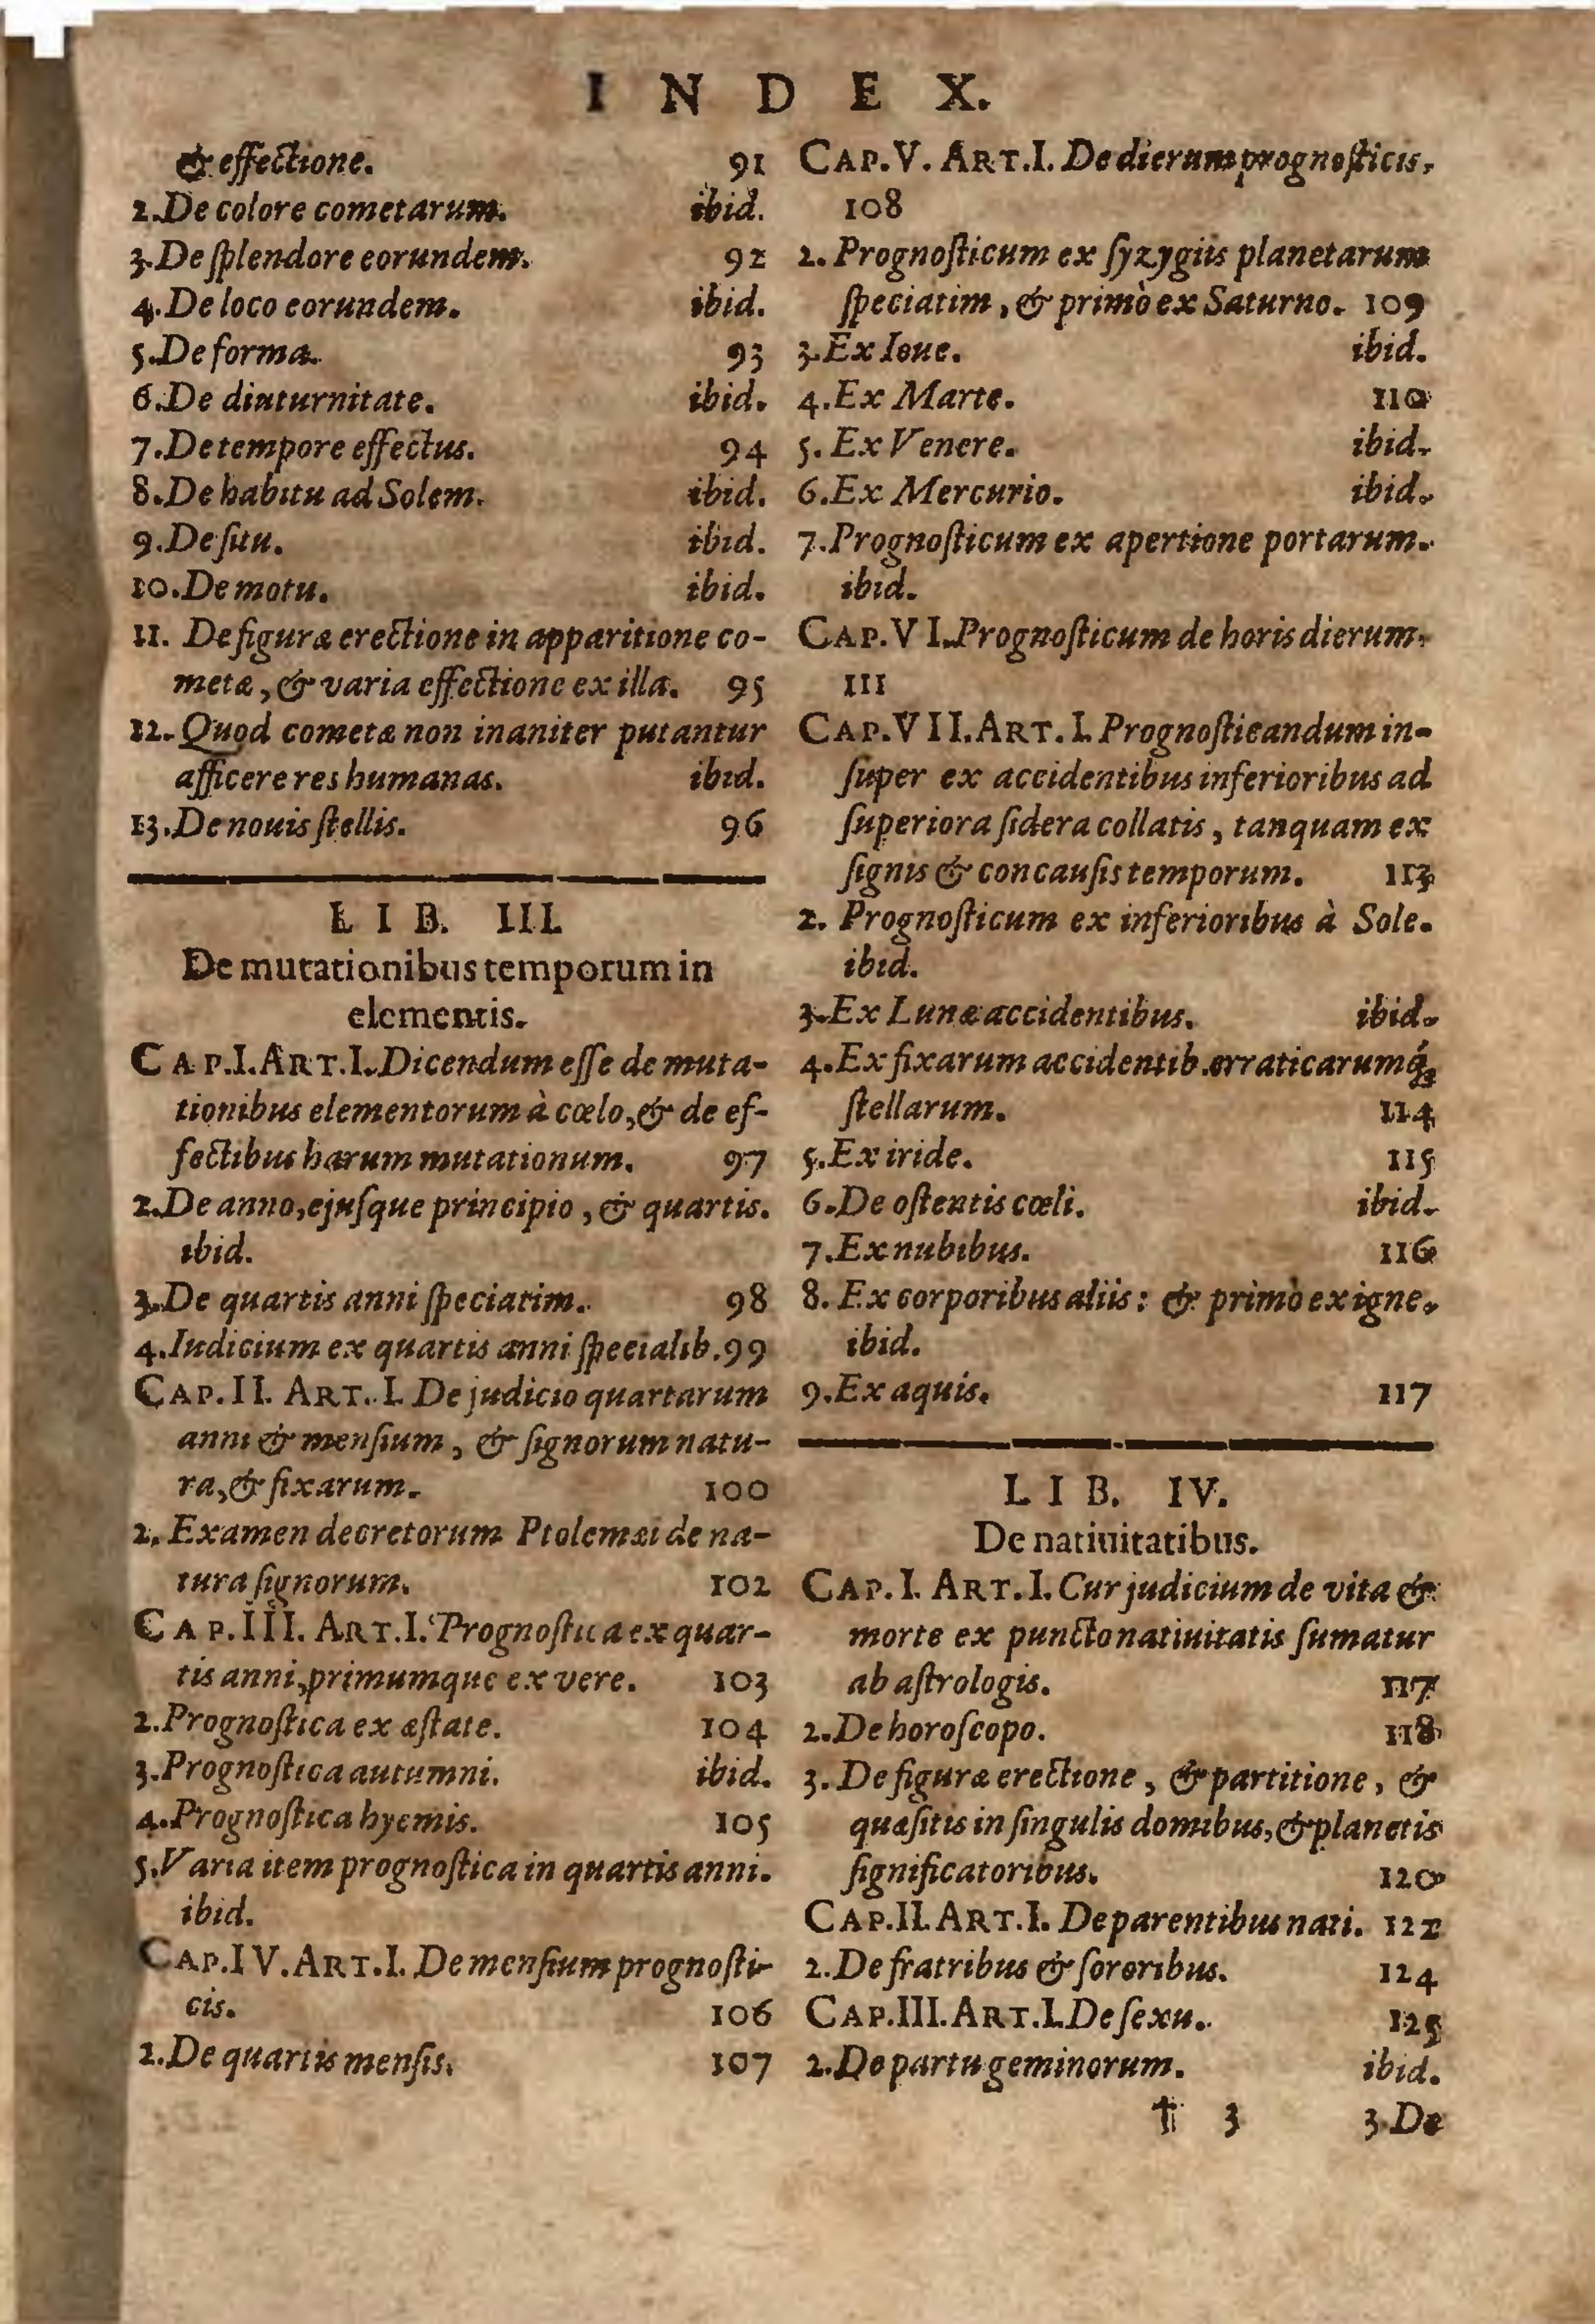 INDEX.
& effectione. 91
2. De colore cometarum. ibid.
3. De ſplendore eorundem. 92
4. De loco eorundem. ibid.
5. De forma. 93
6. De diuturnitate. ibid.
7. De tempore effectus. 94
8. De habitu ad Solem. ibid.
9. De ſitu. ibid.
10. De motu. ibid.
11. De figuræ erectione in apparitione co-
metæ, & varia effectione ex illa. 95
12. Quod cometæ non inaniter putantur
afficere res humanas. ibid.
13. De nouis ſtellis. 96
LIB. III.
De mutationibus temporum in
elementis.
CAP. I. ART. I. Dicendum eſſe de muta-
tionibus elementorum à cœlo, & de ef-
fectibus harum mutationum. 97
2. De anno, ejuſque principio, & quartis.
ibid.
3. De quartis anni ſpeciatim. 98
4. Iudicium ex quartis anni ſpecialib. 99
CAP. II. ART. I. De judicio quartarum
anni & menſium, & ſignorum natu-
ra, & fixarum. 100
2. Examen decretorum Ptolemæi de na-
tura ſignorum. 102
CAP. III. ART. I. Prognoſtica ex quar-
tis anni, primumque ex vere. 103
2. Prognoſtica ex æſtate. 104
3. Prognoſtica autumni. ibid.
4. Prognoſtica hyemis. 105
5. Varia item prognoſtica in quartis anni.
ibid.
CAP. IV. ART. I. De menſium prognoſti-
cis. 106
2. De quartis menſis. 107
CAP. V. ART. I. De dierum prognoſticis,
108
2. Prognoſticum ex ſyzygiis planetarum
ſpeciatim, & primò ex Saturno. 109
3. Ex Ioue. ibid.
4. Ex Marte. 110
5. Ex Venere. ibid.
6. Ex Mercurio. ibid.
7. Prognoſticum ex apertione portarum.
ibid.
CAP. VI. Prognoſticum de horis dierum.
111
CAP. VII. ART. I. Prognoſticandum in-
ſuper ex accidentibus inferioribus ad
ſuperiora ſidera collatis, tanquam ex
ſignis & concauſis temporum. 113
2. Prognoſticum ex inferioribus à Sole.
ibid.
3. Ex Lunæ accidentibus. ibid.
4. Ex fixarum accidentib. erraticarumq́;
ſtellarum. 114
5. Ex iride. 115
6. De oſtentis cœli. ibid.
7. Ex nubibus. 116
8. Ex corporibus aliis: & primò ex igne.
ibid.
9. Ex aquis. 117
LIB. IV.
De natiuitatibus.
CAP. I. ART. I. Cur judicium de vita &
morte ex puncto natiuitatis ſumatur
ab aſtrologis. 117
2. De horoſcopo. 118
3. De figuræ erectione, & partitione, &
quæſitis in ſingulis domibus, & planetis
ſignificatoribus. 120
CAP. II. ART. I. De parentibus nati. 122
2. De fratribus & ſororibus. 124
CAP. III. ART. I. De ſexu. 125
2. De partu geminorum. ibid.
† 3 3. De